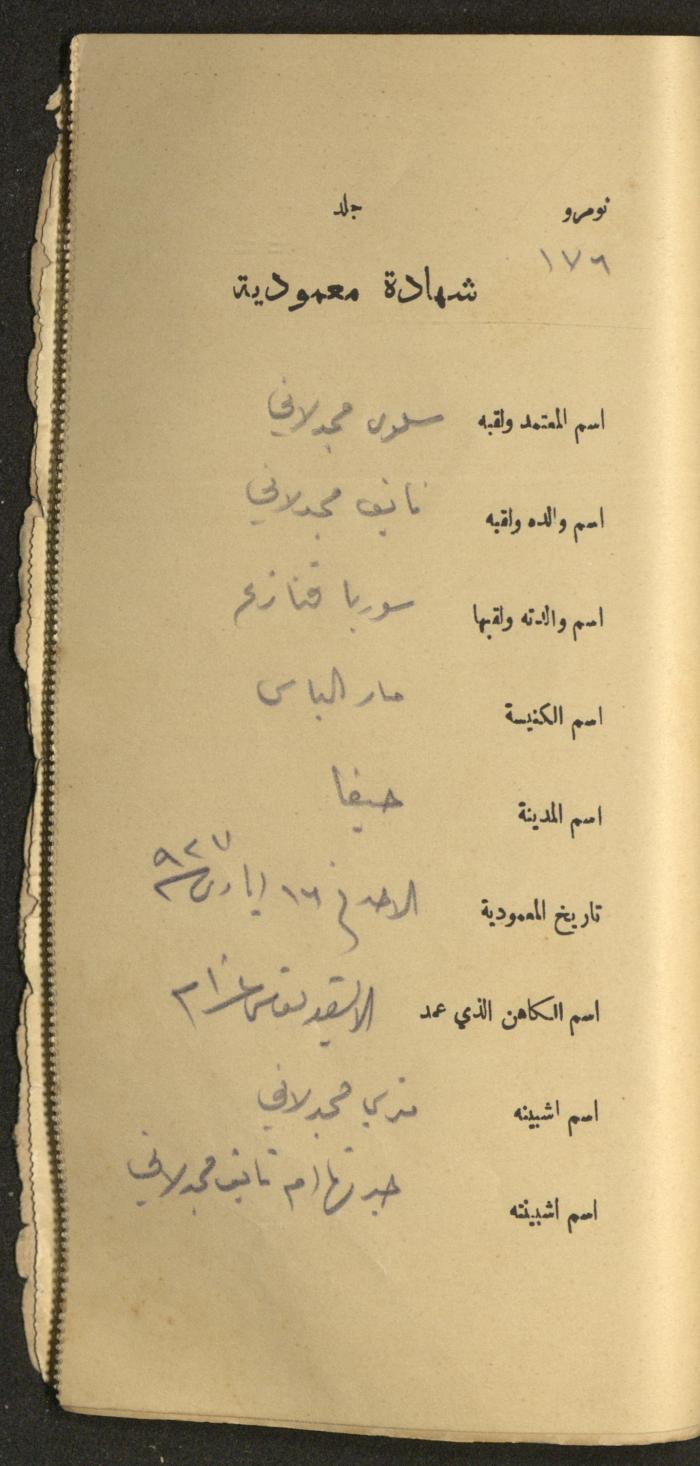 نومرو جلد
١٧٦
شهادة معمودية
اسم المعتمد ولقبه سلوى مجدلاني
اسم والده ولقبه نايف مجدلاني
اسم والدته ولقبها سوريا قنازع
اسم الكنيسة مار الياس
اسم المدينة حيفا
تاريخ المعمودية الاحد في ١٦ ايار ٩٣٧
اسم الكاهن الذي عمد
اسم اشبينه مجدلاني
اسم اشبينته جدتها ام نايف مجدلاني